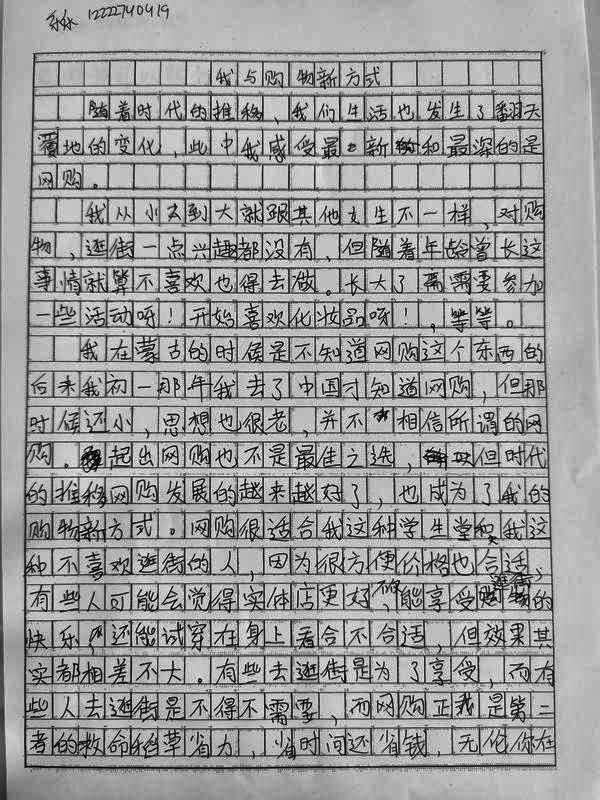 12222740419
我与购物新方式
随着时代的推移，我们生活也发生了翻天
覆地的变化，此中我感受最新和最深的是
网购。
我从小去到大就跟其他女生不一样，对购
物，逛街一点兴趣都没有，但随着年龄曾长这
事情就算不喜欢也得去做。长大了需要参加
一些活动呀！开始喜欢化妆品呀！，等等。
我在蒙古的时候是不知道网购这个东西的
后来我初一那年我去了中国才知道网购，但那
时候还小，思想也很老，并不相信所谓的网
购。起出网购也不是最佳之选，但时代
的推移网购发展的越来越好了，也成为了我的
购物新方式。网购很适合我这种学生党和我这
种不喜欢逛街的人，因为很方便价格也合适，
有些人可能会觉得实体店更好，不仅能享受逛街的
快乐，还能试穿在身上看合不合适，但效果其
实都相差不大。有些去逛街是为了享受，而有
些人去逛街是不得不需要，而网购正是第二
者的救命稻草省力，省时间还省钱，无伦你在